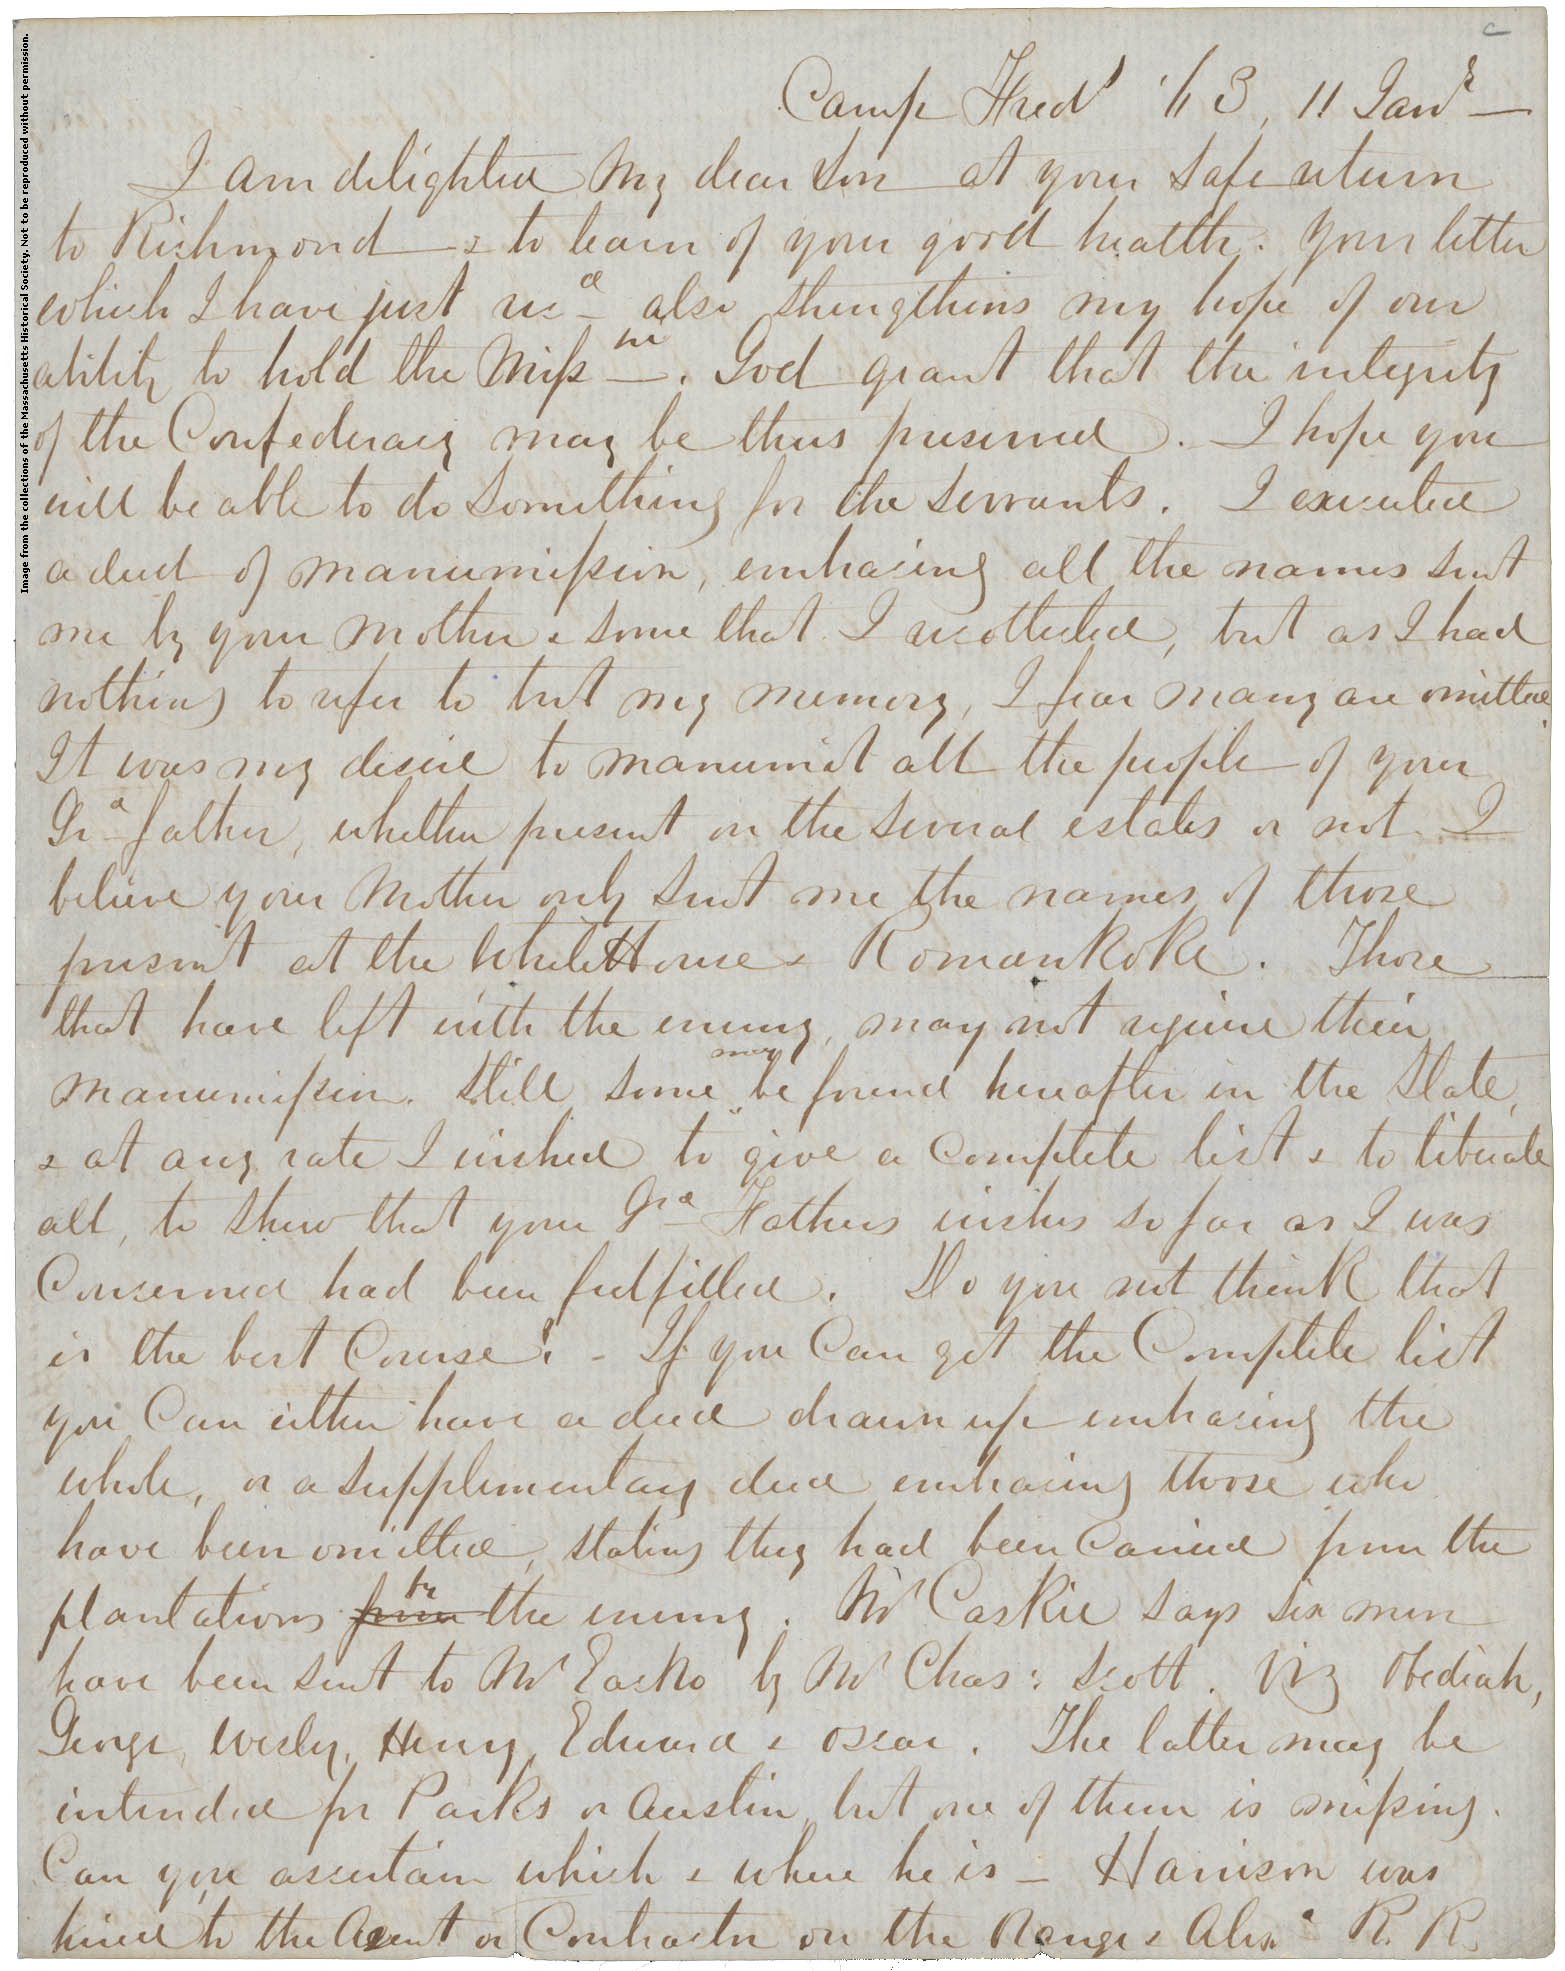 Image from the collections of the Massachusetts Historical Society. Not to be reproduced without permission.
c
Camp Fredg 11 Jany
I am delighted my dear Son at your safe return
to Richmond & to learn of your good health. Your letter
which I have just recd also strengthens my hope of our
ability to hold the Missi. God grant that the integrity
of the Confederacy may be thus preserved. I hope you
will be able to do something for the servants. I executed
a deed of manumission, embracing all the names sent
me by your Mother & some that I recollected, but as I had
nothing to refer to but my memory, I fear many are omitted.
It was my desire to manumit all the people of your
Grd father, whether present on the several estates or not. I
believe your Mother only sent me the names of those
present at the White House & Romankoke. Those
that have left with the enemy, may not require their
manumission. Still some may be found hereafter in the State,
& at any rate I wished to give a complete list & to liberate
all, to show that your Grd Fathers wishes so far as I was
Concerned had been fulfilled. Do you not think that
is the best Course? - If you Can get the Complete list
you Can either have a deed drawn up embracing the
whole, or a supplementary deed embracing those who
have been omitted, stating they had been Carried from the
plantations from by the enemy. Mr Caskie says six men
have been sent to Mr Eacho by Mr Chas: Scott. Viz Obediah,
George, Wesly, Henry, Edward & Oscar. The latter may be
intended for Parks or Austin, but one of them is missing.
Can you ascertain which & where he is - Harrison was
hired to the Agent or Contractor on the Orange & Alexa R. R.